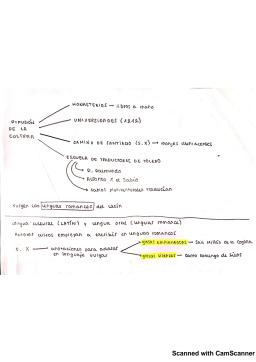 MONASTERIOS → libros a mano
DIFUSIÓN
DE LA
CULTURA
UNIVERSIDADES (1212)
CAMINO DE SANTIAGO (S. X) →
ESCUELA DE TRADUCTORES DE TOLEDO
D. Raimundo
Alfonso X el Sabio
traducían
surgen las lenguas romances del latín
lengua cultural (LATÍN) y lengua oral (lenguas romance)
empiezan a escribir en lenguas romances
S. X → anotaciones para aclarar
en lenguaje vulgar
glosas emilianenses → San Millán de la Cogolla
glosas silenses → Santo Domingo de Silos
Scanned with CamScanner